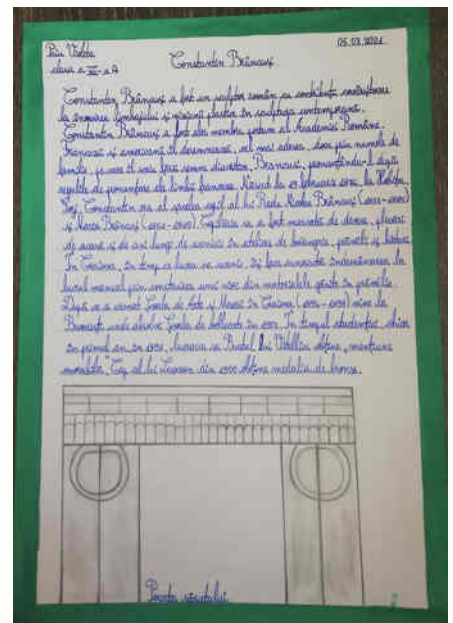 05.03.2021
clasa a XII-a A
Constantin Brâncuși
Constantin Brâncuși a fost un sculptor român cu contribuții
la înnoirea limbajului și viziunii plastice în sculptura contemporană.
Constantin Brâncuși a fost ales membru postum al Academiei Române.
Francezii și americanii îl desemnează, cel mai adesea, doar prin numele de
familie, pe care îl scriu fără semne diacritice, Brancusi, pronunțându-l după
regulile de pronunțare ale limbii franceze. Născut la 19 februarie 1876, la Hobița,
Gorj, Constantin era al șaselea copil al lui Radu Nicolae Brâncuși
și Maria Brâncuși. Copilăria sa a fost marcată de dese plecări
de acasă și de ani lungi de ucenicie în ateliere de boiangerie, prăvălii și birturi.
În Craiova, în timp ce lucra ca ucenic, își face cunoscută îndemânarea la
lucrul manual prin construirea unei viori din materialele găsite în prăvălie.
După ce a urmat Școala de Arte și Meserii în Craiova vine la
București unde absolvă Școala de bellearte în 1902. În timpul studenției, chiar
în primul an, în 1898, lucrarea sa Bustul lui Vitellius obține „mențiune
onorabilă”, Cap al lui Laocoon din 1900 obține medalia de bronz.
Poarta sărutului